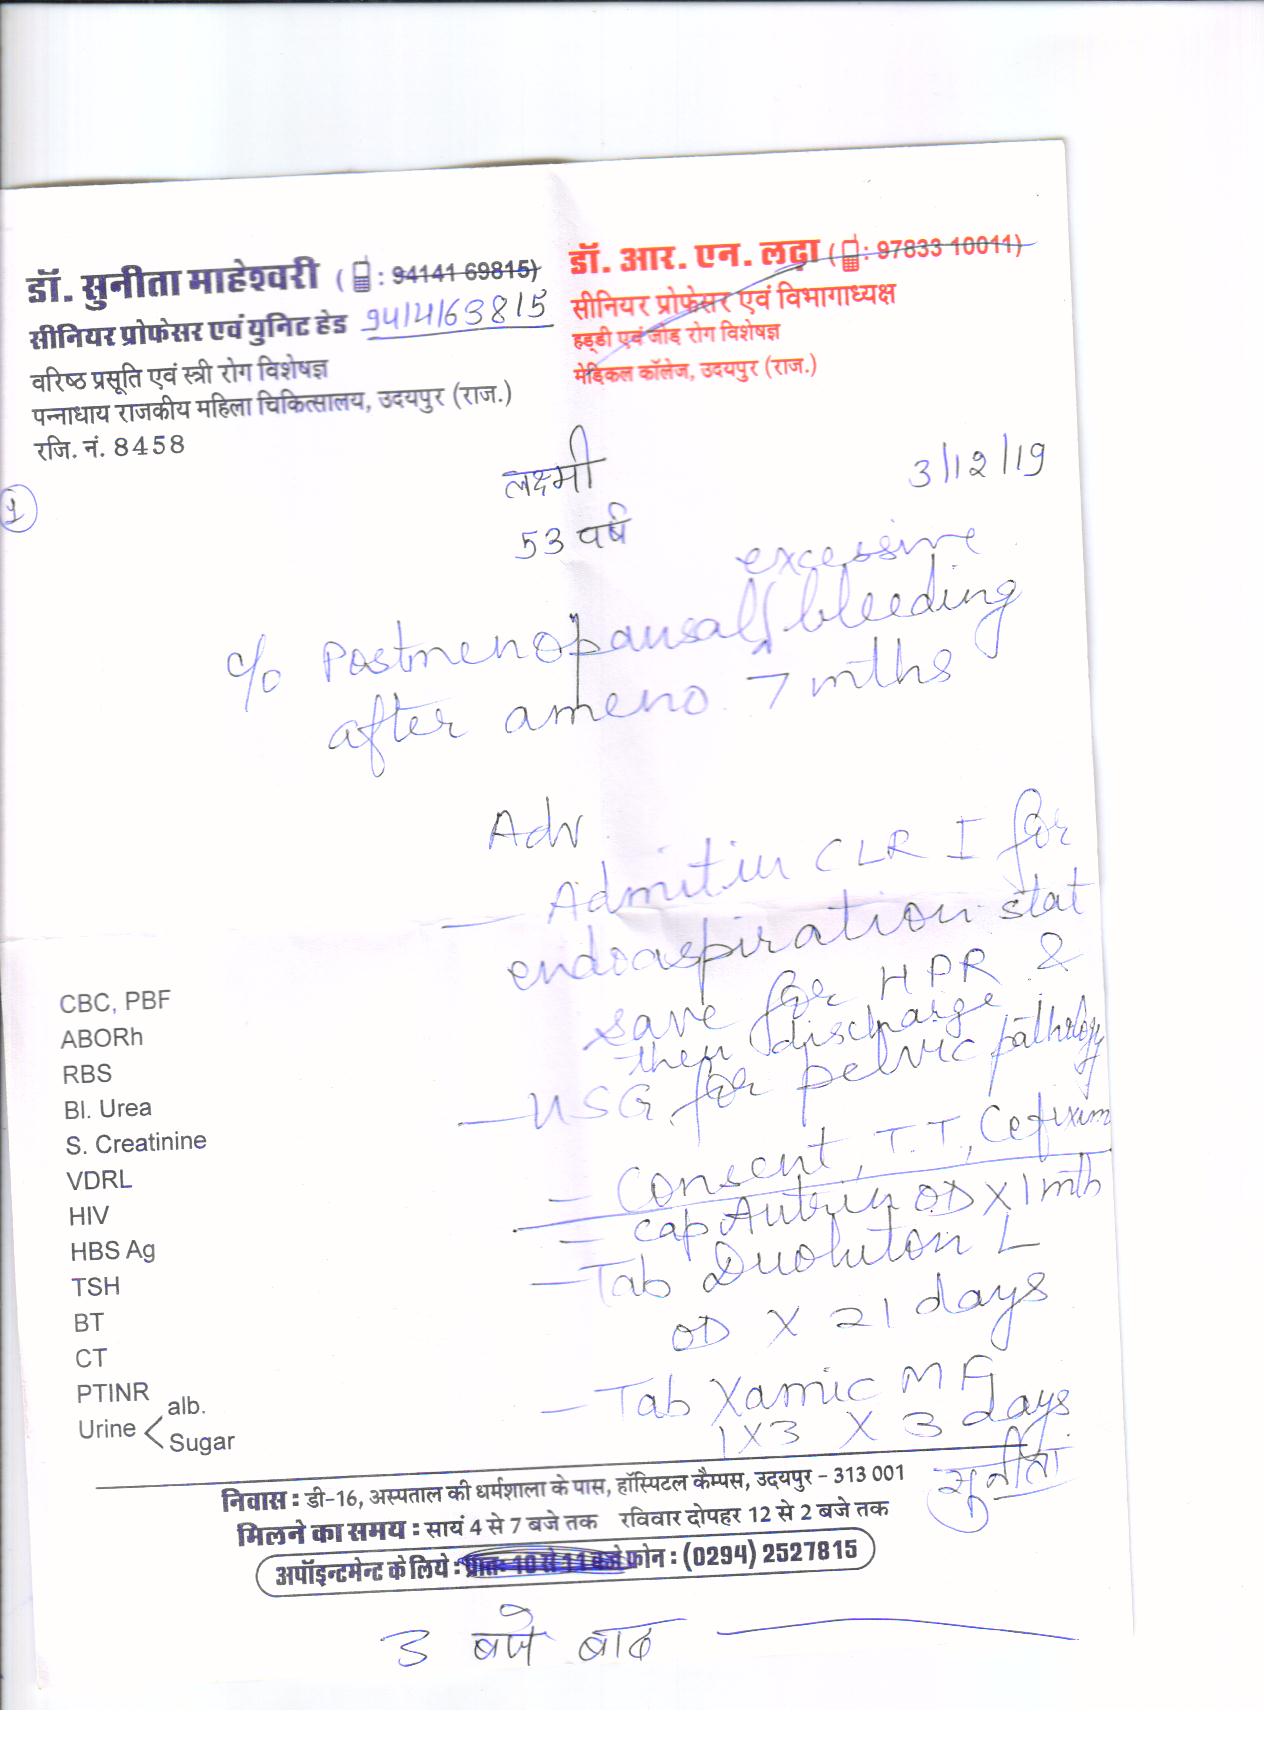 डॉ. सुनीता माहेश्वरी ( : 94141 69815)
सीनियर प्रोफेसर एवं युनिट हेड 9414163815
वरिष्ठ प्रसूति एवं स्त्री रोग विशेषज्ञ
पन्नाधाय राजकीय महिला चिकित्सालय, उदयपुर (राज.)
रजि. नं. 8458
डॉ. आर. एन. लढ़ा ( : 97833 10011)
सीनियर प्रोफेसर एवं विभागाध्यक्ष
हड्डी एवं जोड़ रोग विशेषज्ञ
मेडिकल कॉलेज, उदयपुर (राज.)
1
लक्ष्मी
3/12/19
53 वर्ष
excessive
c/o Postmenopausal bleeding
after ameno. 7 mths
Adv
— Admit in CLR I for
endoaspiration stat
save for HPR &
then discharge
— USG for pelvic pathology
= Consent, T.T., Cefixim
= cap Autrin OD X 1 mth
— Tab Duoluton L
OD X 21 days
— Tab Xamic MF
1 X 3 X 3 days
सुनीता
CBC, PBF
ABORh
RBS
Bl. Urea
S. Creatinine
VDRL
HIV
HBS Ag
TSH
BT
CT
PTINR
Urine < alb.
Sugar
निवास : डी-16, अस्पताल की धर्मशाला के पास, हॉस्पिटल कैम्पस, उदयपुर - 313 001
मिलने का समय : सायं 4 से 7 बजे तक रविवार दोपहर 12 से 2 बजे तक
अपॉइन्टमेन्ट के लिये : प्रातः 10 से 11 बजे फ़ोन : (0294) 2527815
3 बजे बाद